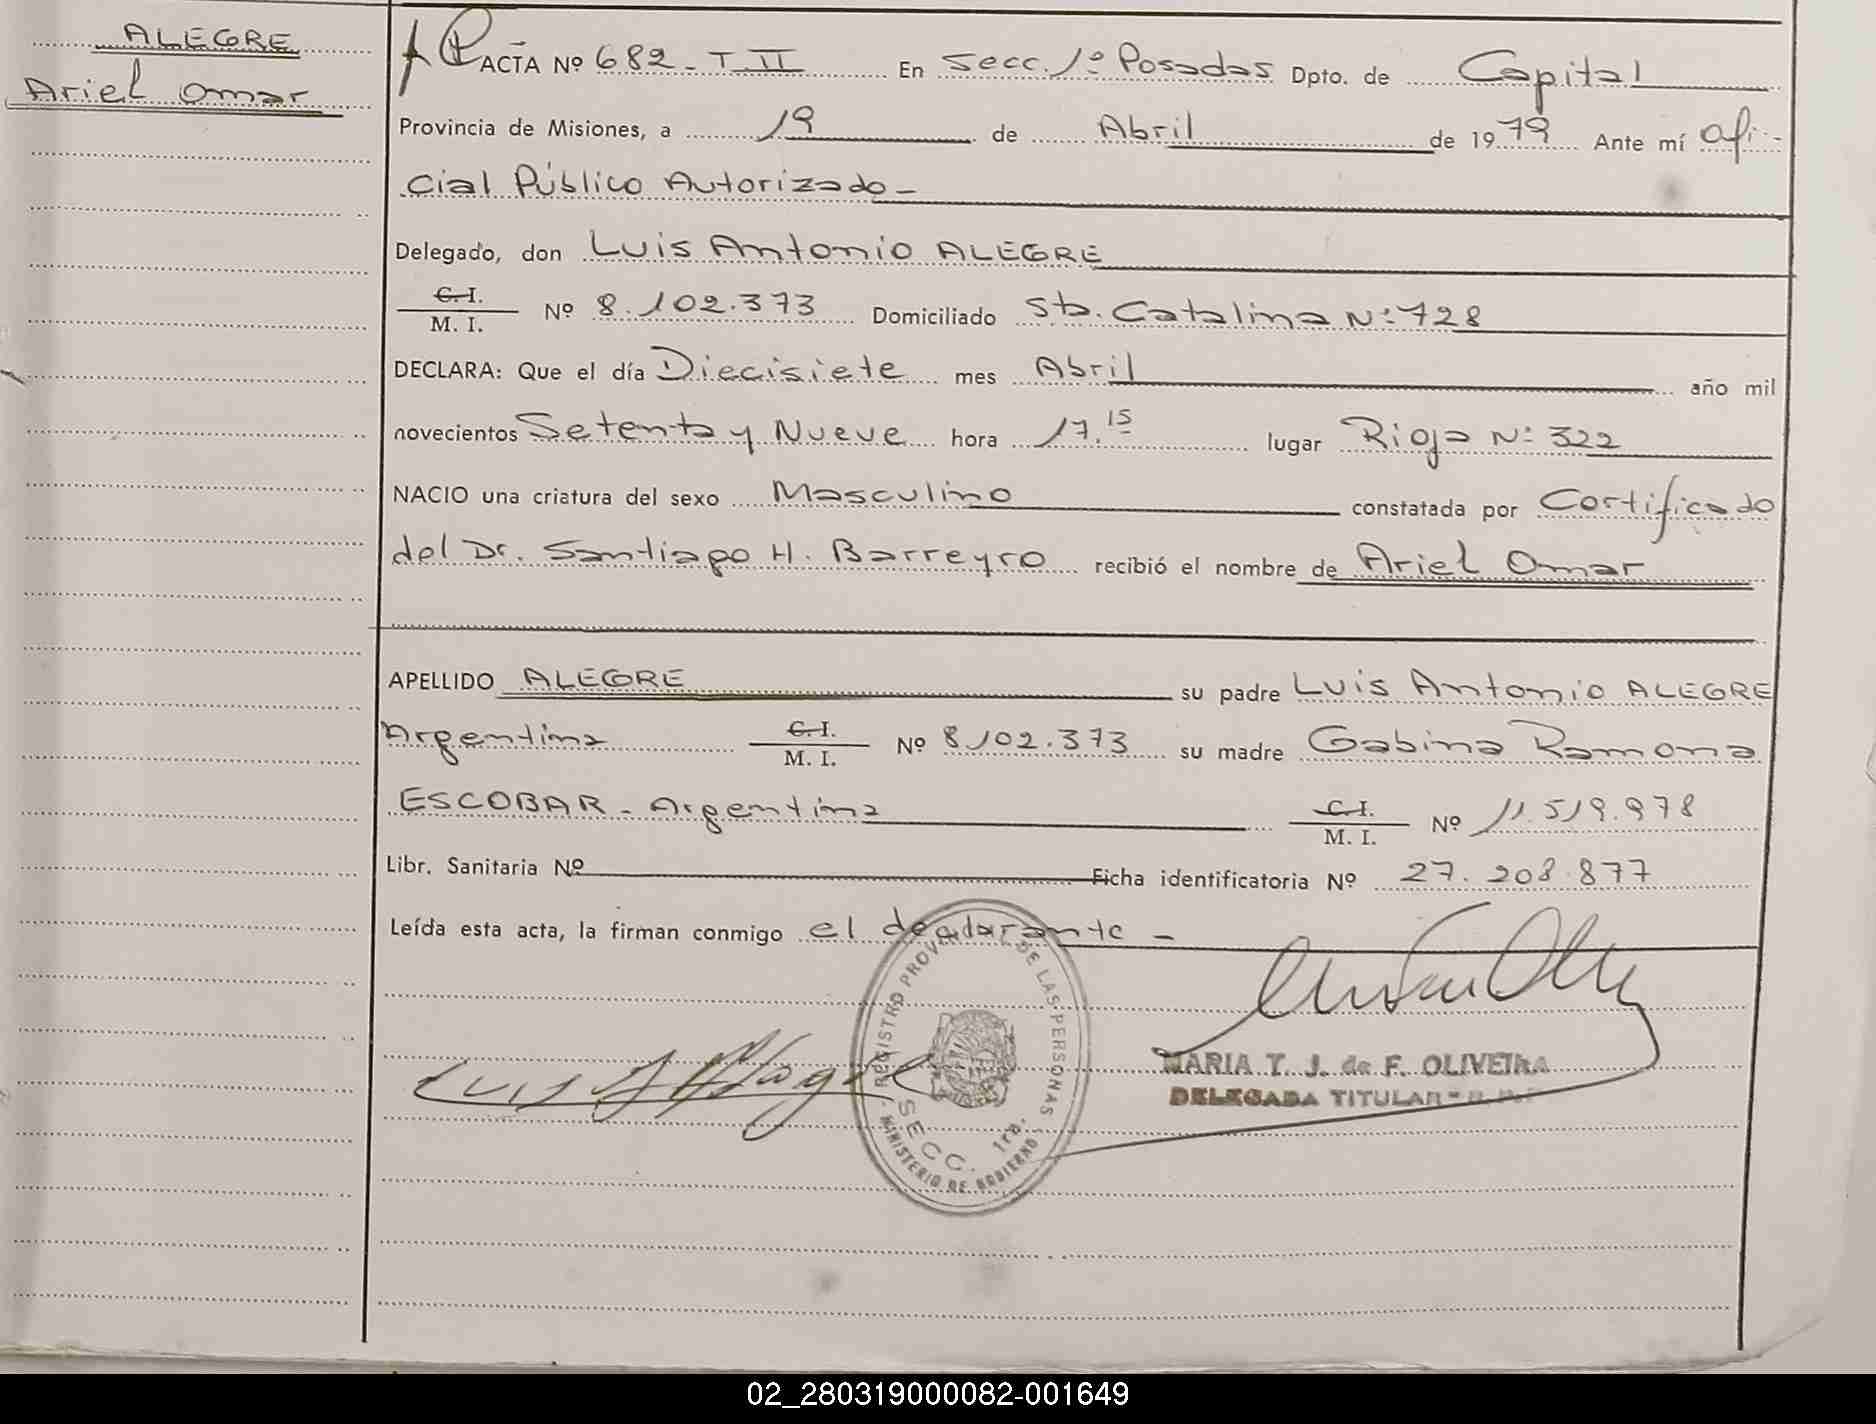 ALEGRE
Ariel Omar
ACTA Nº 682 - T. II En Secc. 1º Posadas Dpto. de Capital
Provincia de Misiones, a 19 de Abril de 1979 Ante mí Ofi-
cial Público Autorizado-
Delegado, don Luis Antonio ALEGRE
C. I.
M. I. Nº 8.102.373 Domiciliado Sta. Catalina Nº 728
DECLARA: Que el día Diecisiete mes Abril año mil
novecientos Setenta y Nueve hora 17.15 lugar Rioja Nº 322
NACIO una criatura del sexo Masculino constatada por Certificado
del Dr. Santiago H. Barreyro recibió el nombre de Ariel Omar
APELLIDO ALEGRE su padre Luis Antonio ALEGRE
Argentina C. I. M. I. Nº 8.102.373 su madre Gabina Ramona
ESCOBAR - Argentina C. I. M. I. Nº 11.519.978
Libr. Sanitaria Nº Ficha identificatoria Nº 27.208.877
Leída esta acta, la firman conmigo el declarante -
REGISTRO PROVINCIAL DE LAS PERSONAS
SECC. 1ra.
MINISTERIO DE GOBIERNO
MARIA T. J. de F. OLIVEIRA
DELEGADA TITULAR
02_280319000082-001649